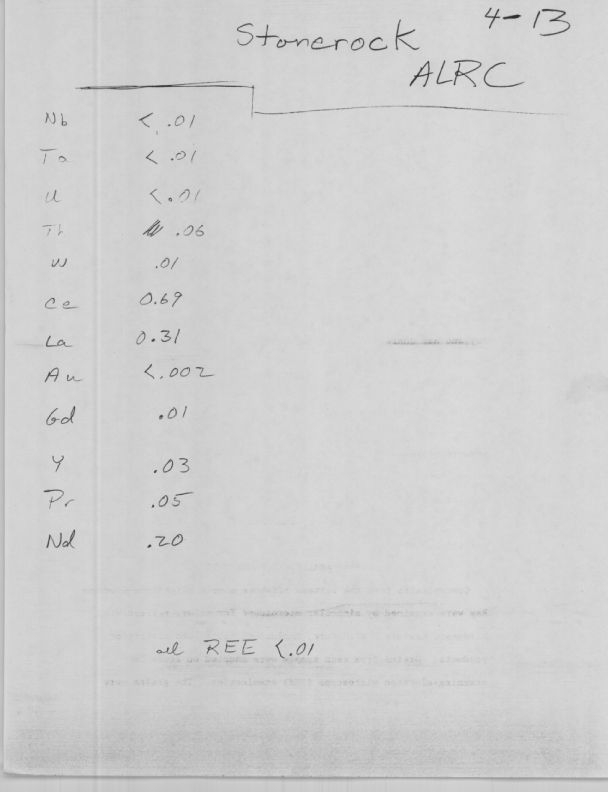 4-13
Stonerock
ALRC
Nb < .01
Ta < .01
U <.01
Th .06
W .01
Ce 0.69
La 0.31
Au <.002
Gd .01
Y .03
Pr .05
Nd .20
all REE <.01